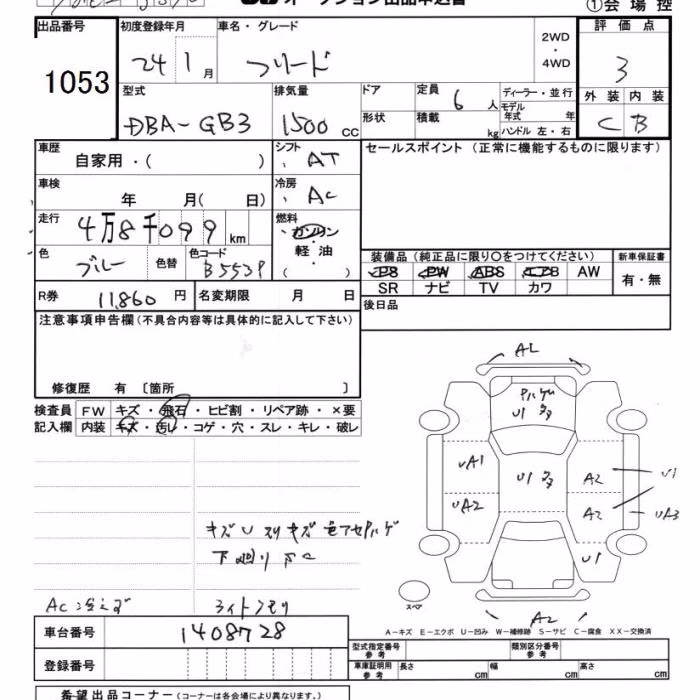 オークション出品申込書
①会場控
出品番号 初度登録年月 車名・グレード 2WD・4WD 評価点
1053 24 1月 フリード 3
型式 排気量 ドア 定員 6人 ディーラー・並行 外装 内装
DBA-GB3 1500cc 形状 積載 kg モデル年式 年 C B
ハンドル 左・右
車歴 自家用・( ) シフト AT セールスポイント (正常に機能するものに限ります)
車検 年 月( 日) 冷房 AC
走行 4万8千099km 燃料 ガソリン・軽油・( )
色 ブルー 色替 色コード B553P
装備品 (純正品に限り○をつけてください) 新車保証書
PS PW ABS エアB AW 有・無
SR ナビ TV カワ
R券 11,860円 名変期限 月 日 後日品
注意事項申告欄(不具合内容等は具体的に記入して下さい)
修復歴 有 〔箇所 〕
検査員 FW キズ・飛石・ヒビ割・リペア跡・×要
記入欄 内装 キズ・汚レ・コゲ・穴・スレ・キレ・破レ
A2
U1
U1
UA1 A2 U1
UA2 A2 UA3
U1
キズU スリキズ 色アセ ハゲ
下廻り
AC冷えず ライトクモリ
スペア
A2
A-キズ E-エクボ U-凹み W-補修跡 S-サビ C-腐食 XX-交換済
車台番号 1408728
型式指定番号 参考 類別区分番号 参考
登録番号 車庫証明用 参考 長さ cm 幅 cm 高さ cm
希望出品コーナー (コーナーは各会場により異なります。)